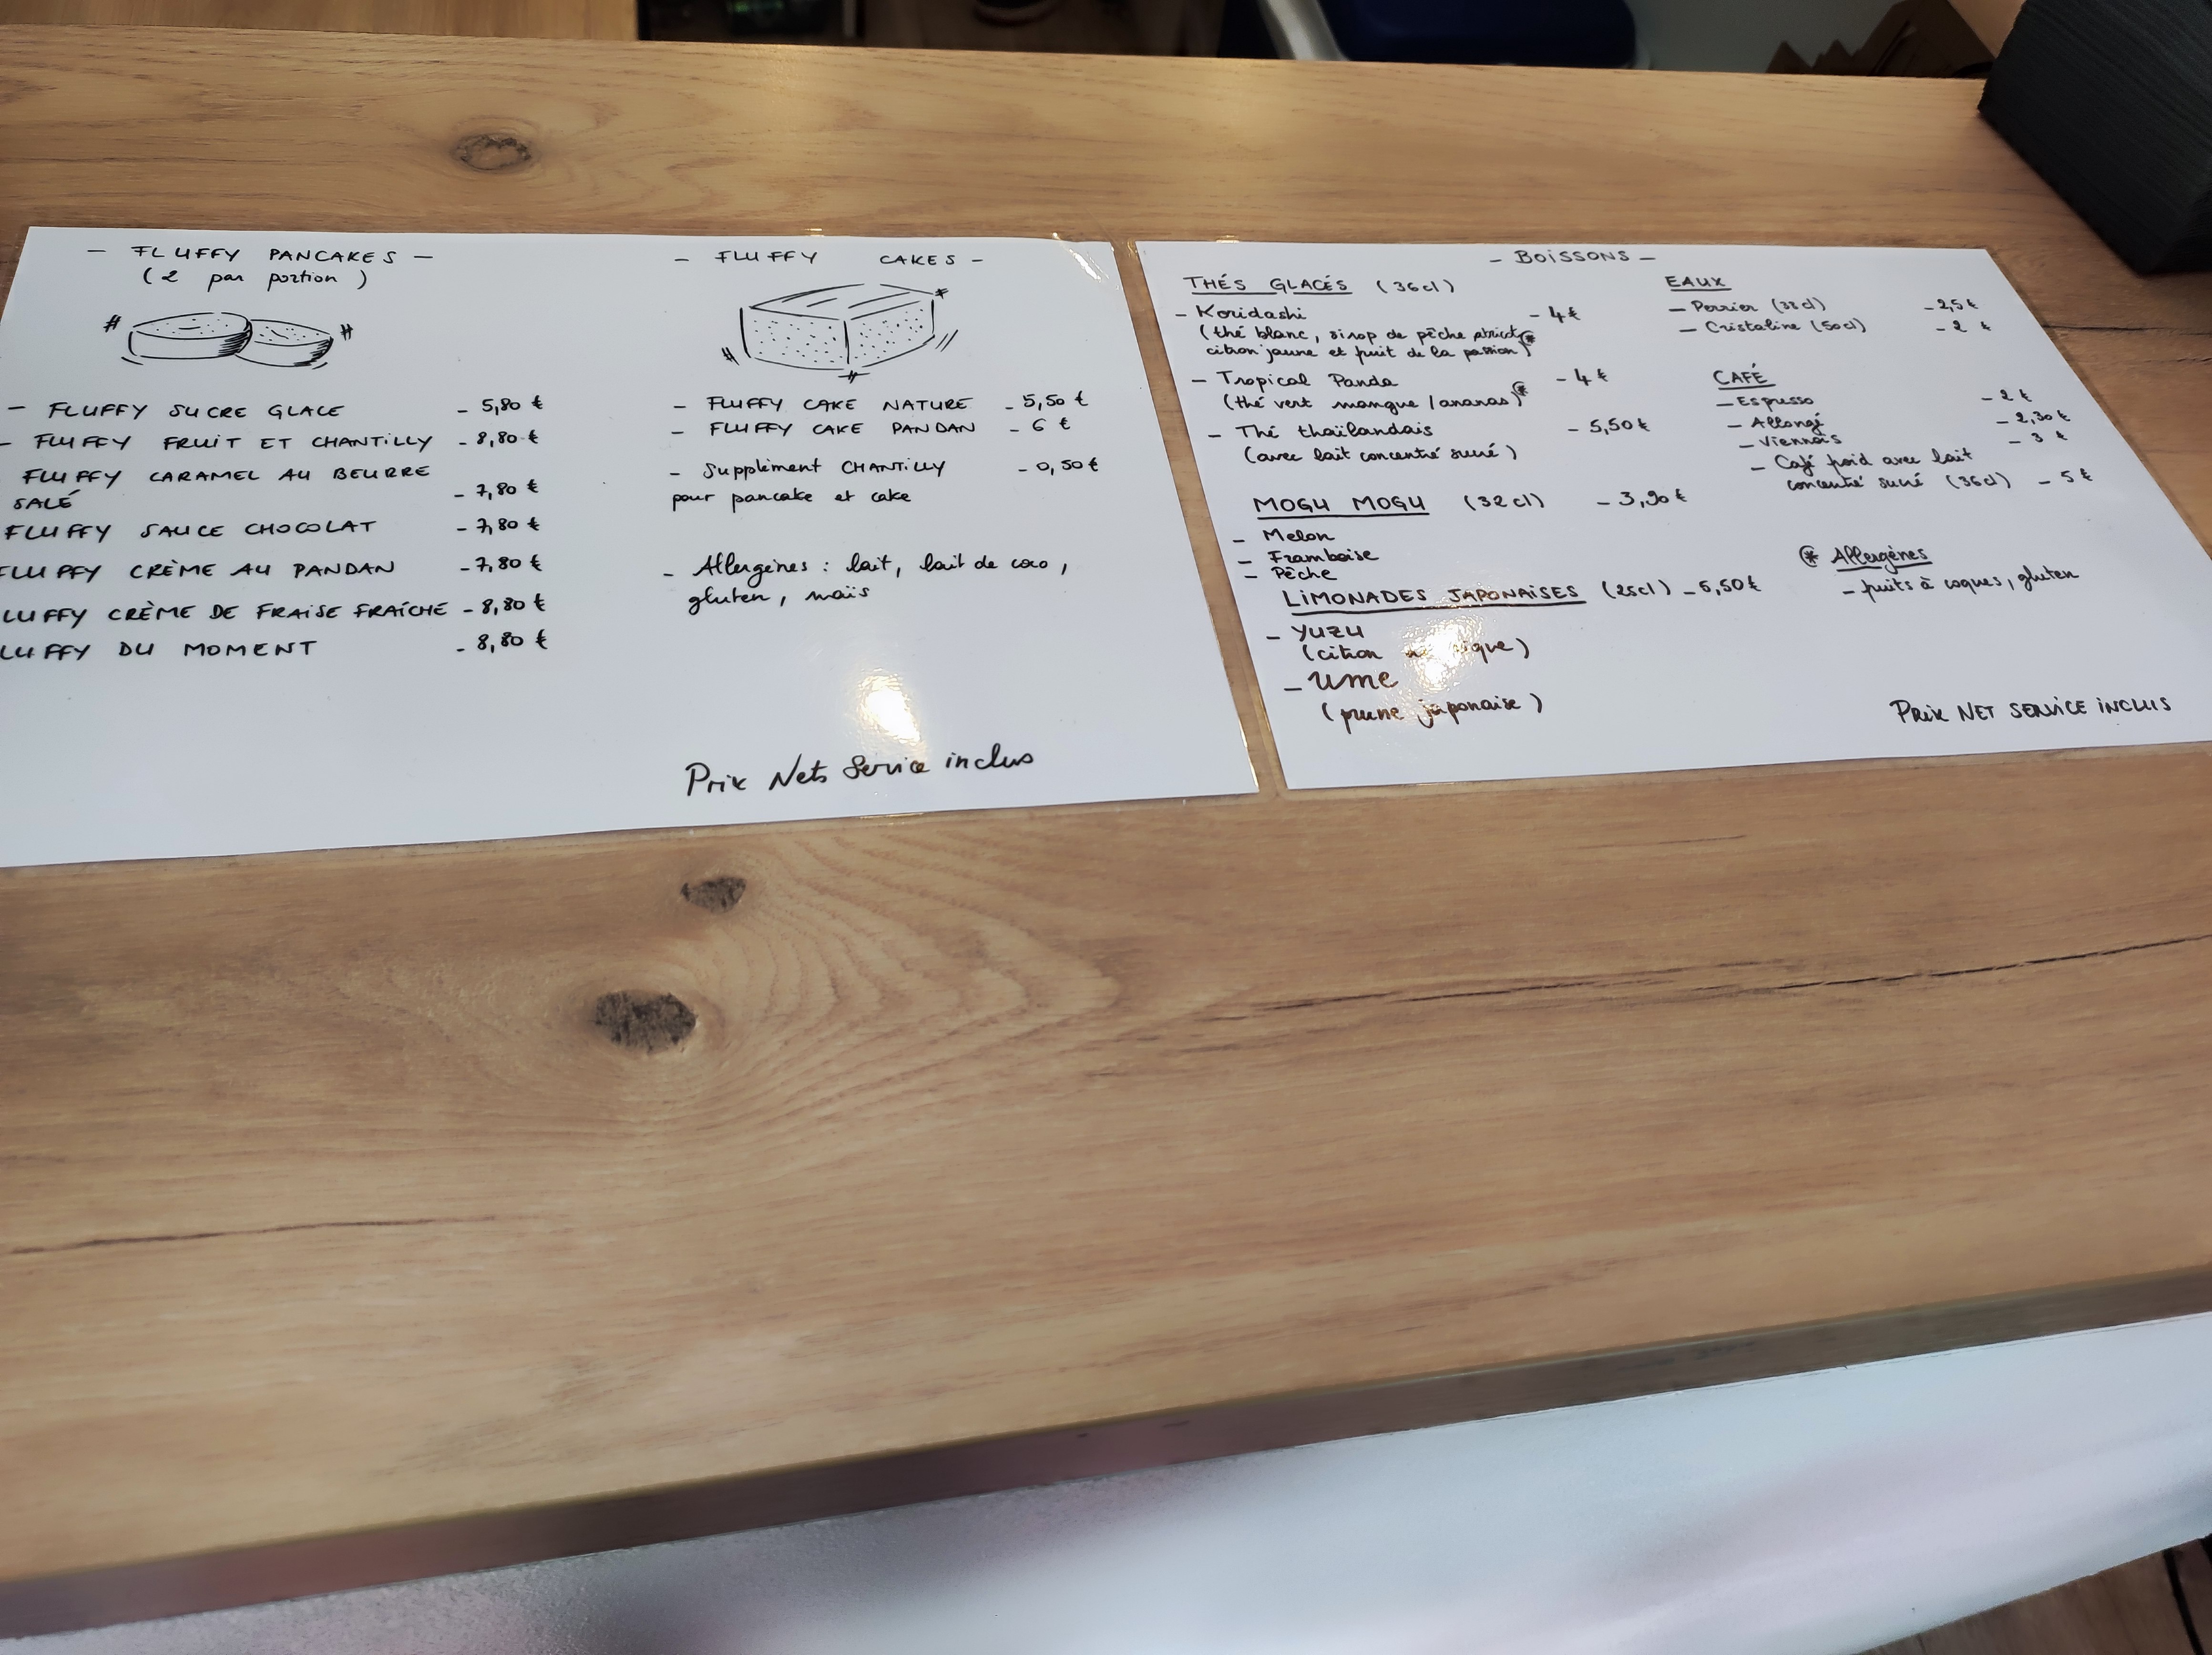 - FLUFFY PANCAKES -
(2 par portion)
- FLUFFY SUCRE GLACE - 5,80 €
- FLUFFY FRUIT ET CHANTILLY - 8,80 €
FLUFFY CARAMEL AU BEURRE
SALÉ - 7,80 €
FLUFFY SAUCE CHOCOLAT - 7,80 €
FLUFFY CRÈME AU PANDAN - 7,80 €
LUFFY CRÈME DE FRAISE FRAÎCHE - 8,80 €
LUFFY DU MOMENT - 8,80 €
- FLUFFY CAKES -
- FLUFFY CAKE NATURE - 5,50 €
- FLUFFY CAKE PANDAN - 6 €
- Supplément CHANTILLY - 0,50 €
pour pancake et cake
- Allergènes : lait, lait de coco,
gluten, maïs
Prix Nets Service inclus
- BOISSONS -
THÉS GLACÉS (36cl)
- Koridashi - 4 €
(thé blanc, sirop de pêche abricot,
citron jaune et fruit de la passion)*
- Tropical Panda - 4 €
(thé vert mangue / ananas)*
- Thé thaïlandais - 5,50 €
(avec lait concentré sucré)
MOGU MOGU (32cl) - 3,90 €
- Melon
- Framboise
- Pêche
LIMONADES JAPONAISES (25cl) - 6,50 €
- YUZU
(citron
- Ume
(prune japonaise)
EAUX
- Perrier (33cl) - 2,5 €
- Cristaline (50cl) - 2 €
CAFÉ
- Espresso - 2 €
- Allongé - 2,30 €
- Viennois - 3 €
- Café froid avec lait
concentré sucré (36cl) - 5 €
* Allergènes
- fruits à coques, gluten
PRIX NET SERVICE INCLUS